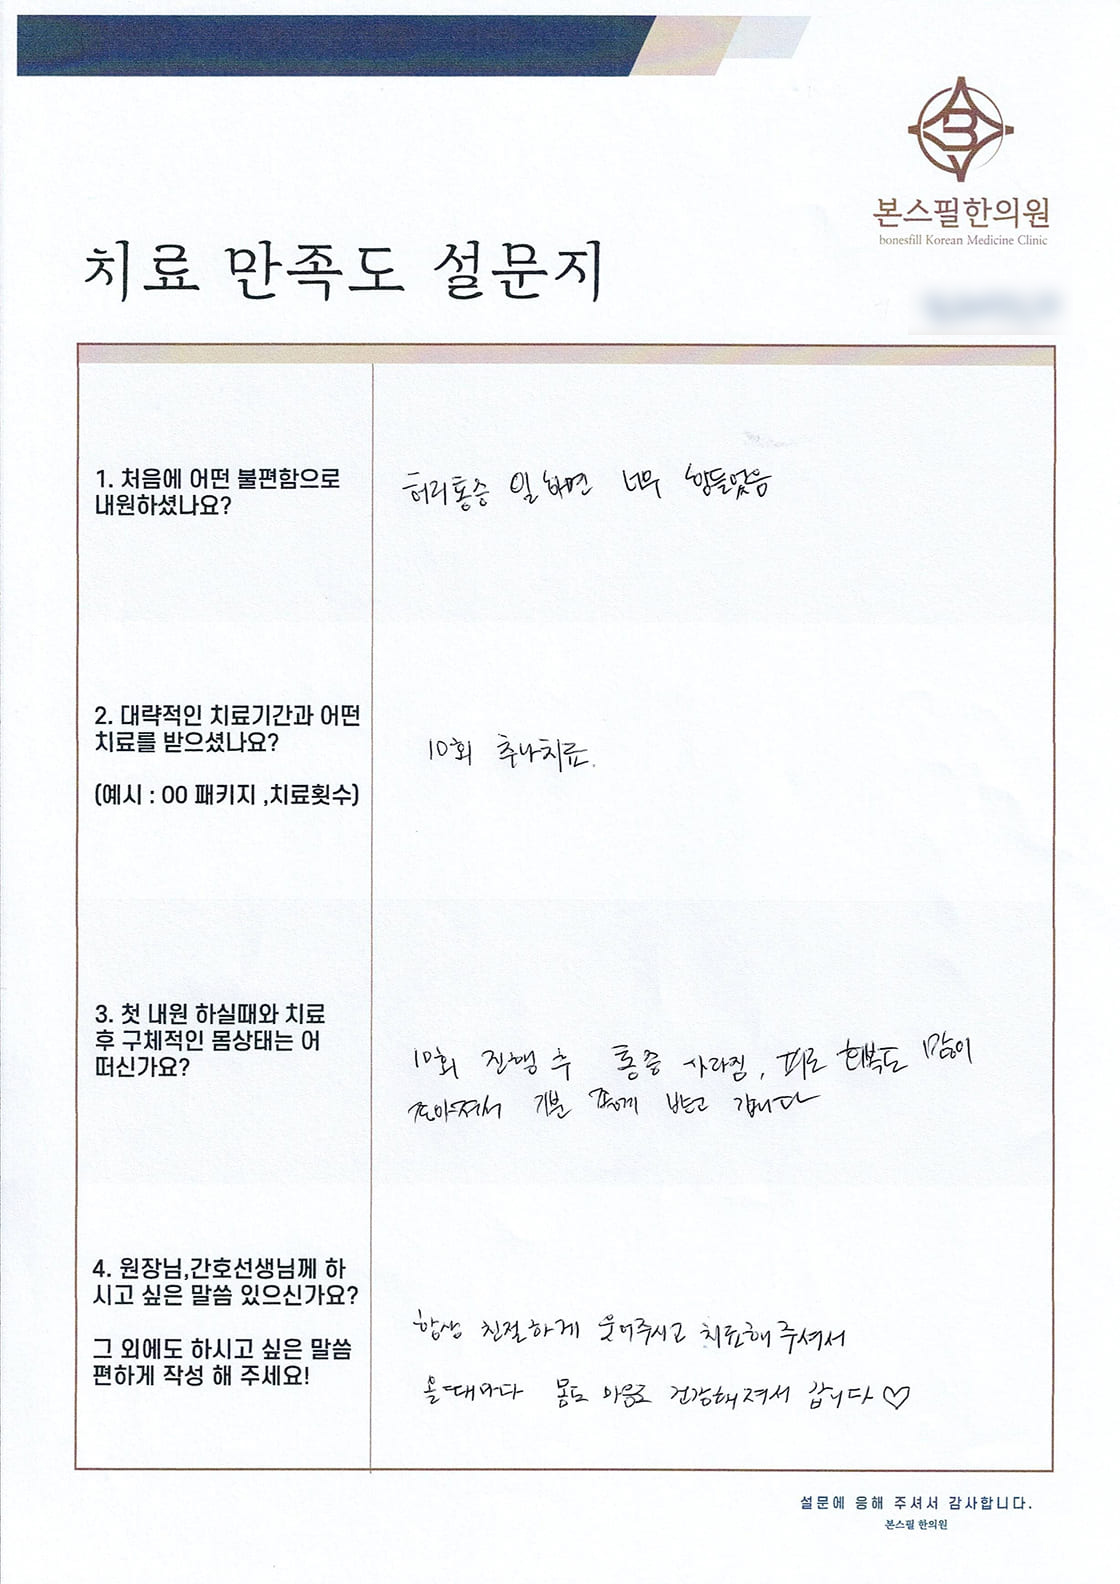 본스필한의원
bonesfill Korean Medicine Clinic
치료 만족도 설문지
1. 처음에 어떤 불편함으로
내원하셨나요?
허리통증 일하면 너무 힘들었음
2. 대략적인 치료기간과 어떤
치료를 받으셨나요?
(예시 : 00 패키지 ,치료횟수)
10회 추나치료.
3. 첫 내원 하실때와 치료
후 구체적인 몸상태는 어
떠신가요?
10회 진행 후 통증 사라짐, 피로 회복도 많이
좋아져서 기분 좋게 받고 갑니다
4. 원장님,간호선생님께 하
시고 싶은 말씀 있으신가요?
그 외에도 하시고 싶은 말씀
편하게 작성 해 주세요!
항상 친절하게 웃어주시고 치료해주셔서
올때마다 몸도 마음도 건강해져서 갑니다♡
설문에 응해 주셔서 감사합니다.
본스필 한의원